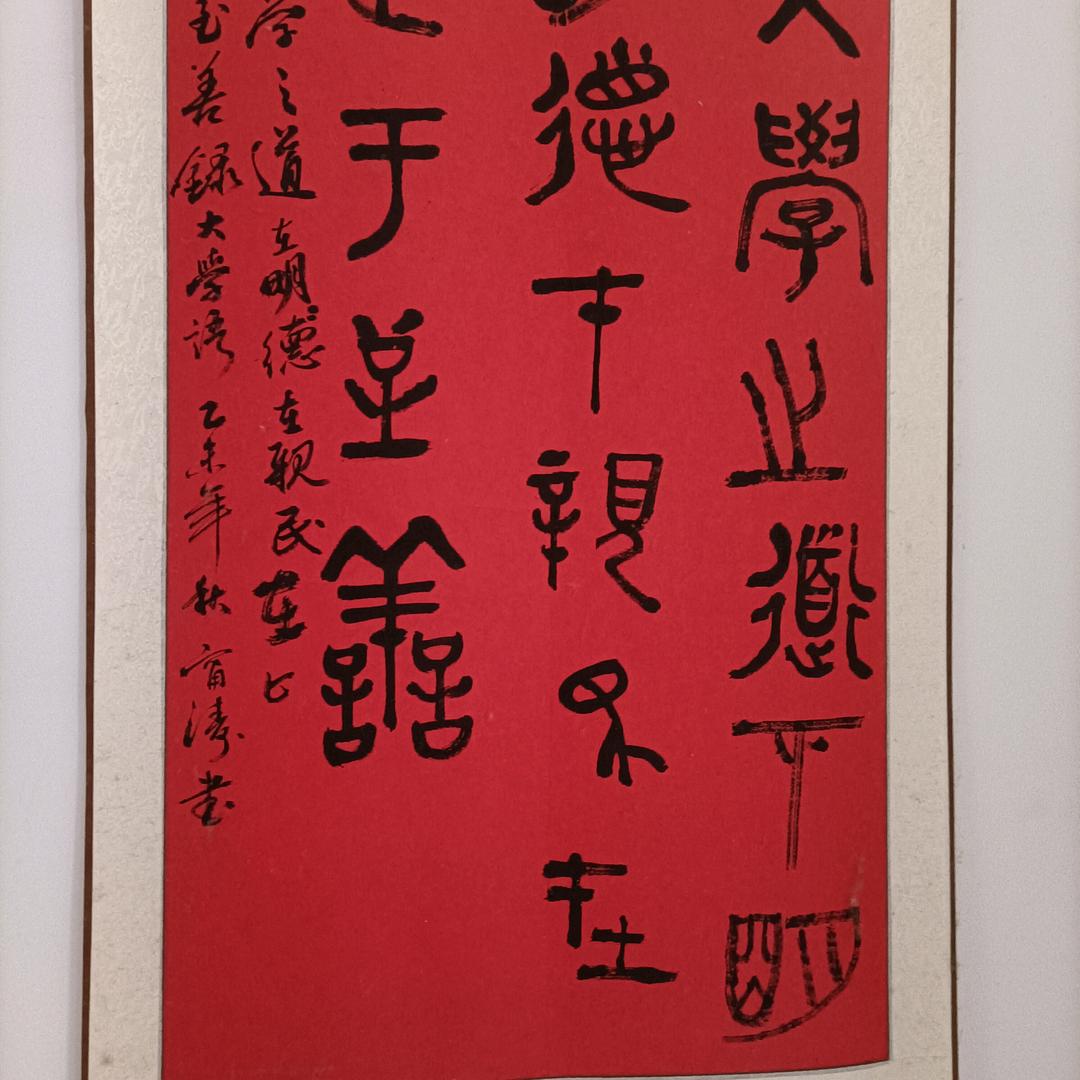 大學之道在明
德在親民在
止于至善
学之道在明〻德在親民在止
至善録大學語乙未年秋甯涛書